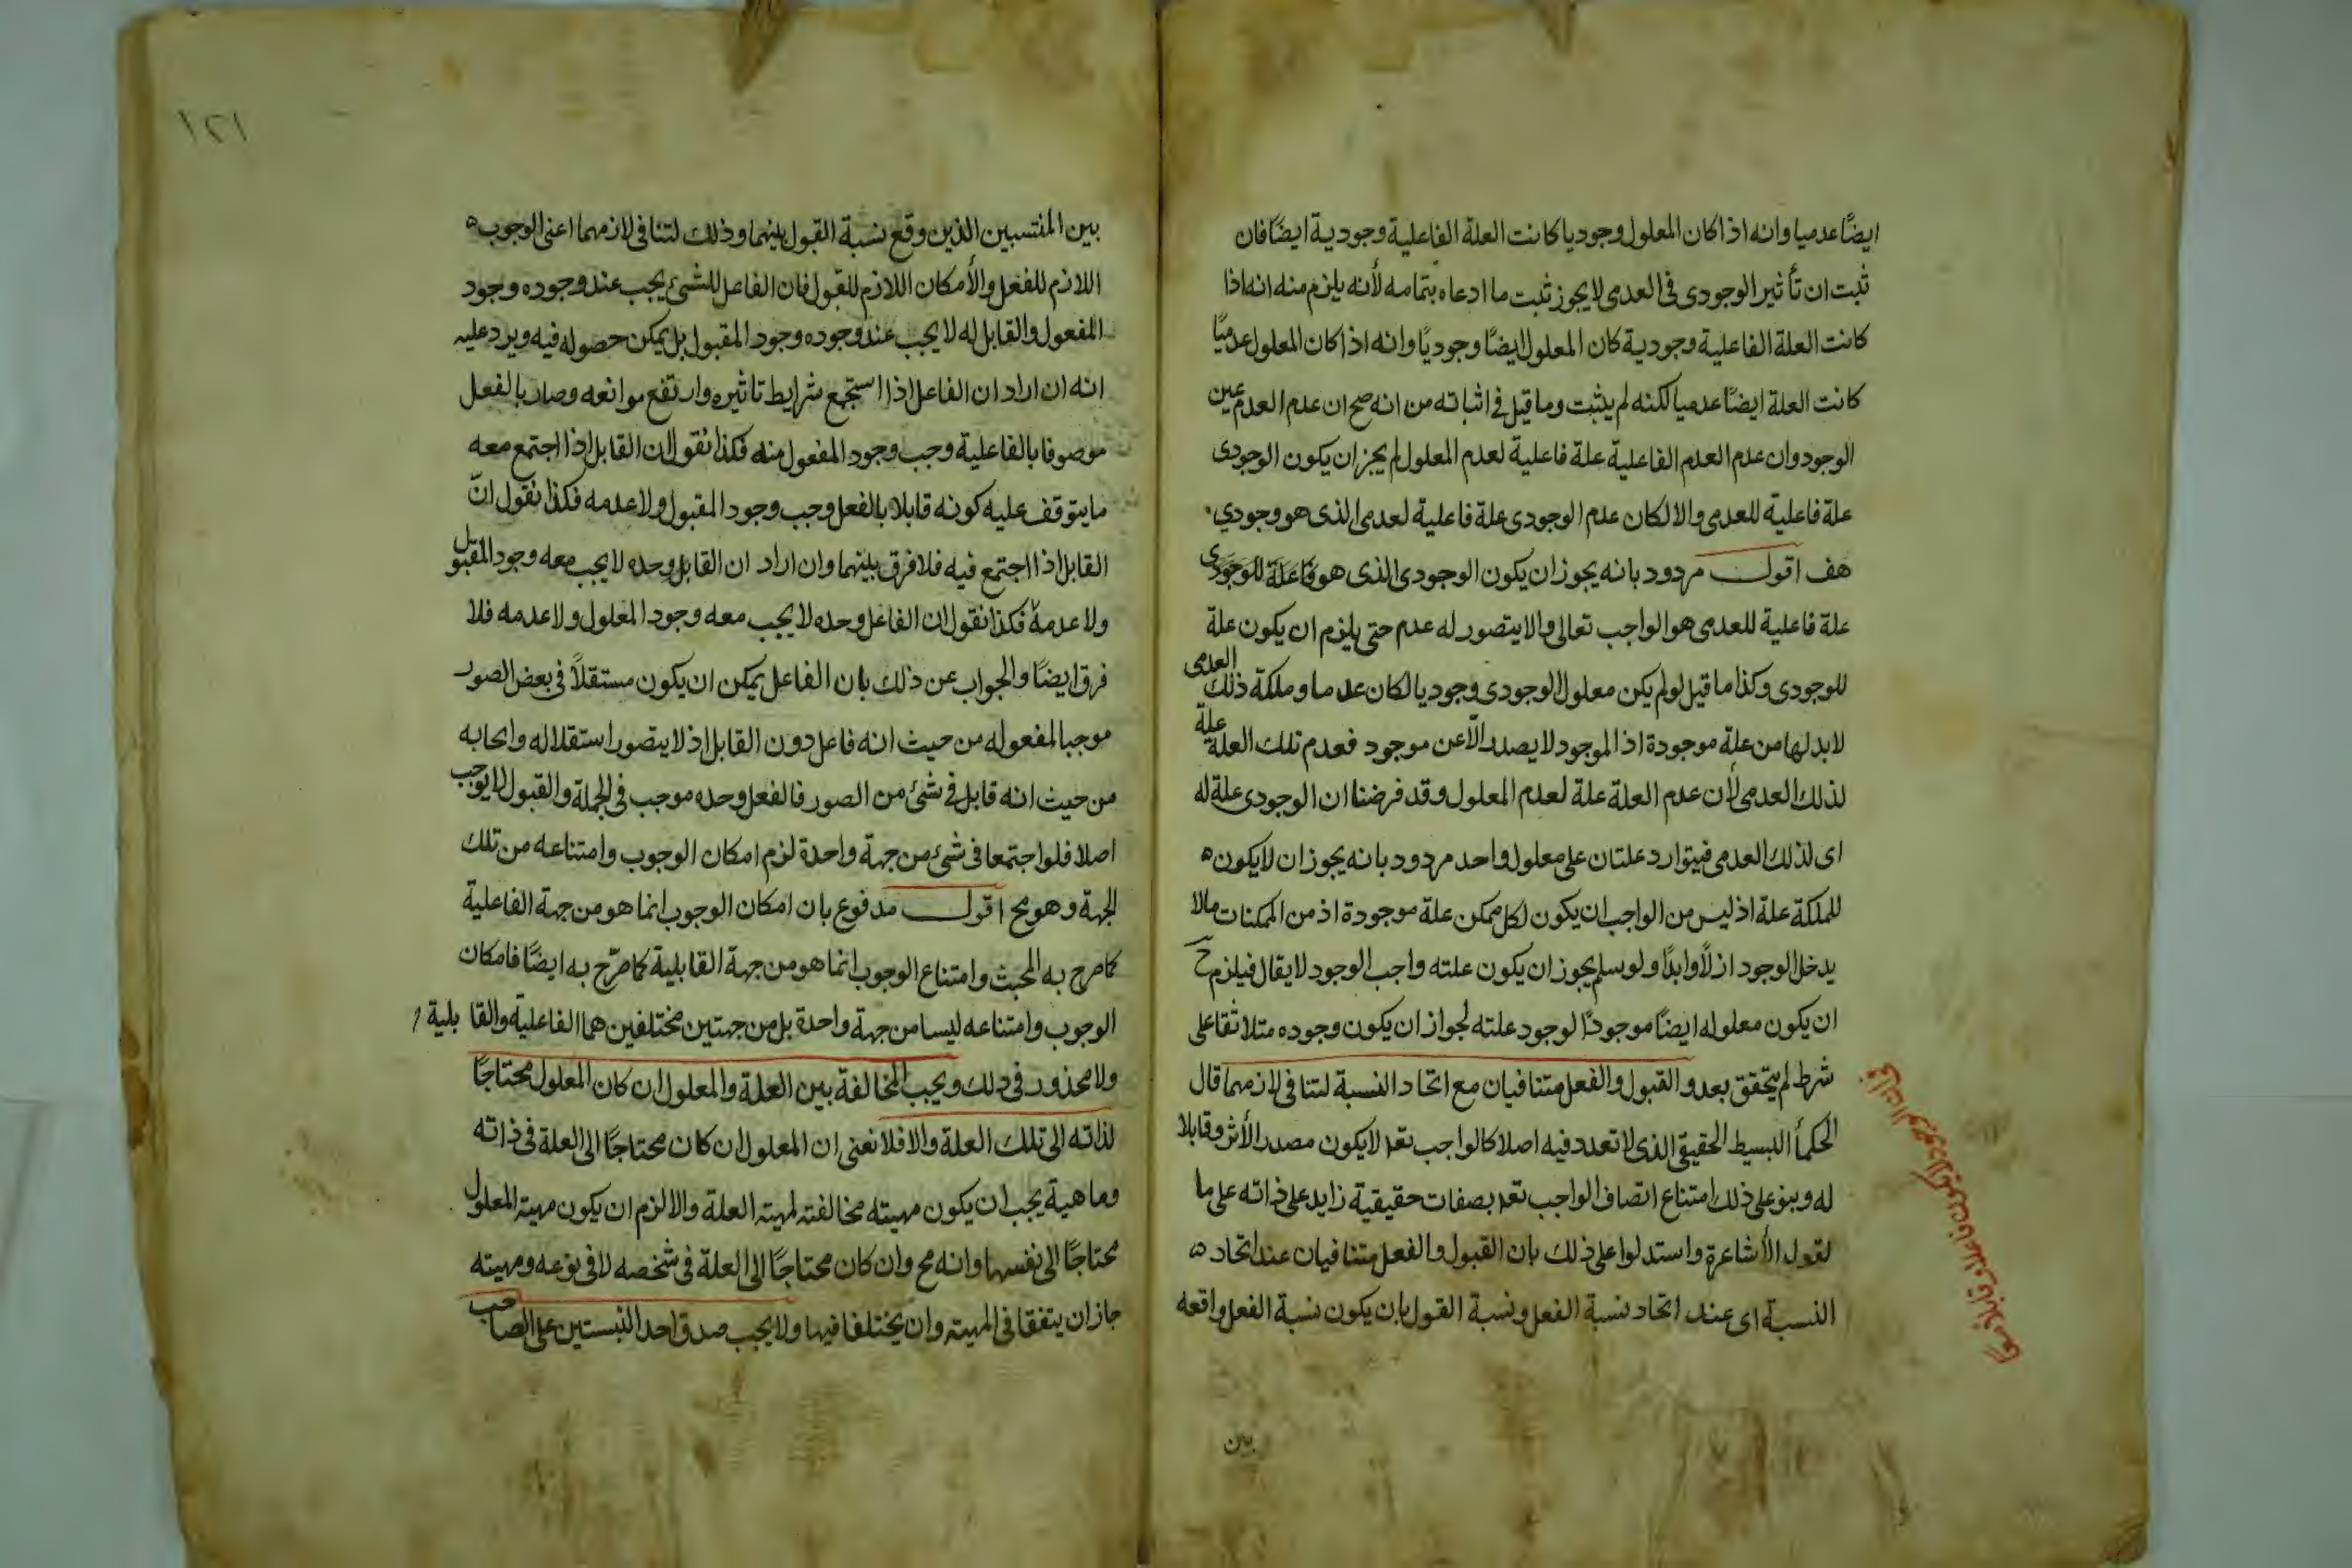 ايضًا عدميا وانه اذا كان المعلول وجوديا كانت العلة الفاعلية وجودية ايضًا فان
ثبت ان تأثير الوجودى فى العدمى لا يجوز ثبت ما ادعاه بتمامه لأنه يلزم منه انه اذا
كانت العلة الفاعلية وجودية كان المعلول ايضًا وجوديًا وانه اذا كان المعلول عدميًا
كانت العلة ايضًا عدميا لكنه لم يثبت وما قيل فى اثباته من انه صح ان عدم العدم عين
الوجود وان عدم العدم الفاعلية علة فاعلية لعدم المعلول لم يجز ان يكون الوجودى
علة فاعلية للعدمى والا لكان عدم الوجودى علة فاعلية لعدمى الذى هو وجودي
هف اقول مردود بانه يجوز ان يكون الوجودى الذى هو فاعلة للوجودى
علة فاعلية للعدمى هو الواجب تعالى والا يتصور له عدم حتى يلزم ان يكون علة
للوجودى وكذا ما قيل لو لم يكن معلول الوجودى وجوديا لكان عدما وملكة ذلك العدمى
لابد لها من علة موجودة اذ الموجود لا يصدر الّا عن موجود فعدم تلك العلة علة
لذلك العدمى لأن عدم العلة علة لعدم المعلول وقد فرضنا ان الوجودى علة له
اى لذلك العدمى فيتوارد علتان على معلول واحد مردود بانه يجوز ان لا يكون
للملكة علة اذ ليس من الواجب ان يكون لكل ممكن علة موجودة اذ من الممكنات مالا
يدخل الوجود ازلًا وابدًا ولو سلم يجوز ان يكون علته واجب الوجود لا يقال فيلزم ح
ان يكون معلوله ايضًا موجودًا لوجود علته لجواز ان يكون وجوده مثلا ثقا على
شرط لم يتحقق بعد و القبول والفعل متنافيان مع اتحاد النسبة لتنافى لازمهما قال
الحكمأ البسيط الحقيقى الذى لا تعدد فيه اصلا كالواجب تعه لا يكون مصدر الأثر وقابلا
له وبنو على ذلك امتناع اتصاف الواجب تعه بصفات حقيقية زايد على ذاته على ما
لقول الأشاعرة واستدلوا على ذلك بان القبول والفعل متنافيان عند اتحاد
النسبة اى عند اتحاد نسبة الفعل ونسبة القول بان يكون نسبة الفعل واقعه
بين
١٢١
بين المنتسبين الذين وقع نسبة القبول بينهما وذلك لتنافى لازمهما اعنى الوجوب
اللازم للفعل والأمكان اللازم للقبول فان الفاعل للشئ يجب عند وجوده وجود
المفعول والقابل له لا يجب عند وجوده وجود المقبول بل يمكن حصوله فيه ويرد عليه
انه ان اراد ان الفاعل اذا استجمع شرايط تاثيره وارتفع موانعه وصار بالفعل
موصوفا بالفاعلية وجب وجود المفعول منه فكذا نقول ان القابل اذا اجتمع معه
ما يتوقف عليه كونه قابلا بالفعل وجب وجود المقبول ولا عدمه فكذا نقول انّ
القابل اذا اجتمع فيه فلا فرق بينهما وان اراد ان القابل وحده لا يجب معه وجود المقبول
ولا عدمه فكذا نقول ان الفاعل وحده لا يجب معه وجود المعلول ولا عدمه فلا
فرق ايضًا والجواب عن ذلك بان الفاعل يمكن ان يكون مستقلًا فى بعض الصور
موجبا لمفعوله من حيث انه فاعل دون القابل اذ لا يتصور استقلاله وايجابه
من حيث انه قابل فى شئ من الصور فالفعل وحده موجب فى الجملة والقبول لا يوجب
اصلا فلو اجتمعا فى شئ من جهة واحدة لزم امكان الوجوب وامتناعه من تلك
الجهة وهو مح اقول مدفوع بان امكان الوجوب انما هو من جهة الفاعلية
كما صرح به المحبث وامتناع الوجوب انما هو من جهة القابلية كما صرّح به ايضًا فامكان
الوجوب وامتناعه ليسا من جهة واحدة بل من جهتين مختلفين هما الفاعلية والقابلية
ولا محذور فى ذلك ويجب المخالفة بين العلة والمعلول ان كان المعلول محتاجًا
لذاته الى تلك العلة والا فلا نعنى ان المعلول ان كان محتاجًا الى العلة فى ذاته
وماهية يجب ان يكون مهيته مخالفته لمهيته العلة والا لزم ان يكون مهيته المعلول
محتاجًا الى نفسها وانه مح وان كان محتاجًا الى العلة فى شخصه لا فى نوعه ومهيته
جاز ان يتفقا فى المهيته وان يختلفا فيها ولا يجب صدق احد النسبتين على الصاحب